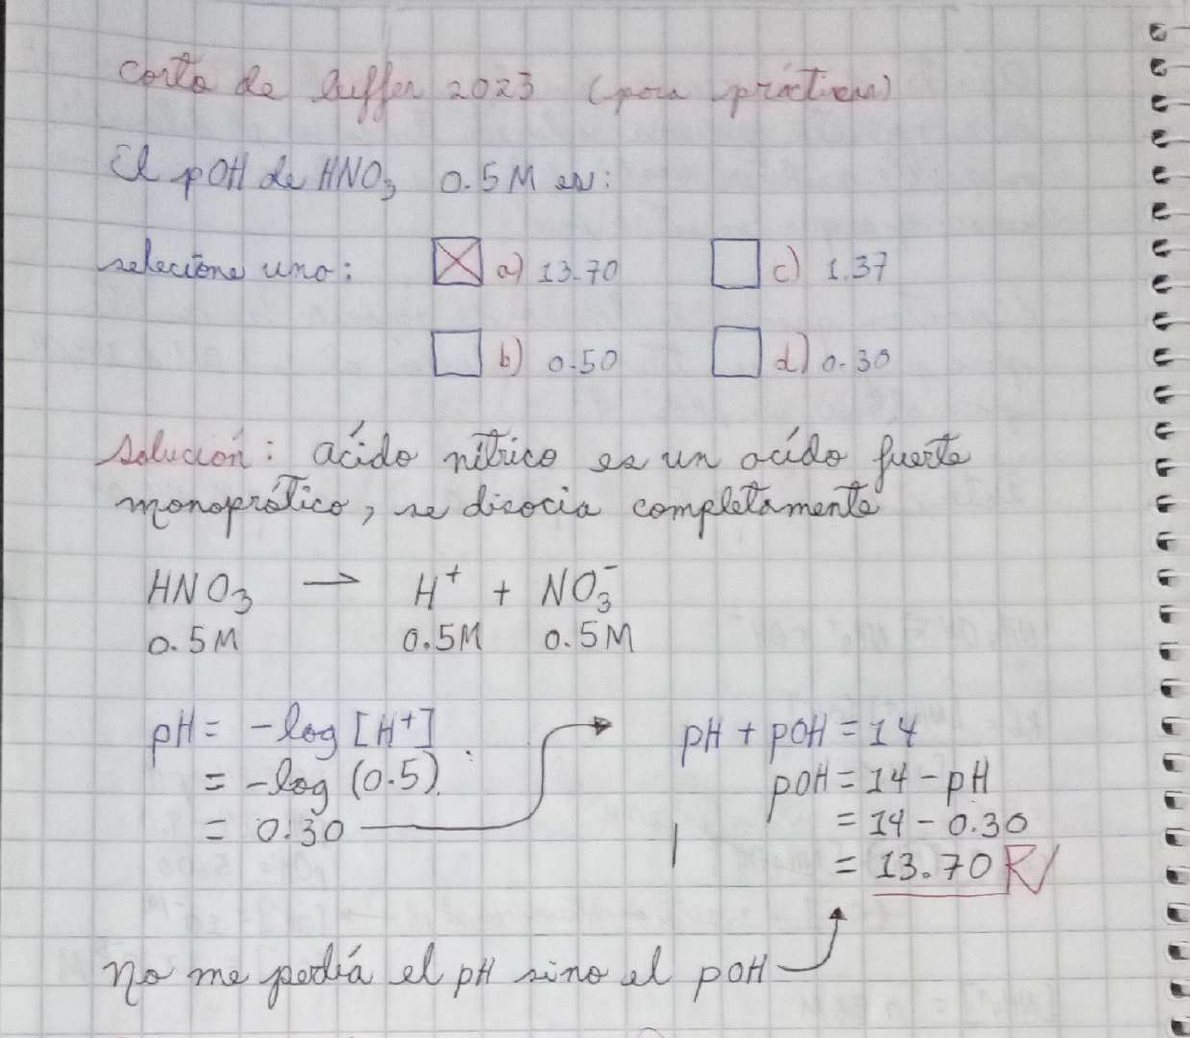 corto de buffer 2023 (para practicar)
El pOH de HNO₃ 0.5M es:
selecione uno: a) 13.70 c) 1.37
b) 0.50 d) 0.30
Solución: ácido nítrico es un ácido fuerte
monoprótico, se disocia completamente
HNO₃ → H⁺ + NO₃⁻
0.5M 0.5M 0.5M
pH = -log [H⁺]
= -log (0.5)
= 0.30
pH + pOH = 14
pOH = 14 - pH
= 14 - 0.30
= 13.70 R/
no me pedía el pH sino el pOH